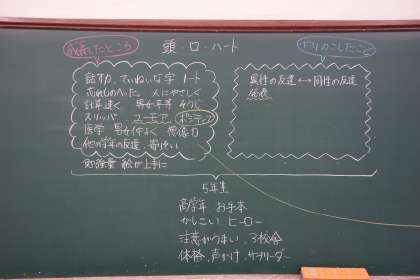 成長したところ
頭・口・ハート
やりのこしたこと
話す力、ていねいな字 ノート
忘れものへった。人にやさしく
計算速く 男女平等 そうじ
スリッパ ユーモア ポジティブ
男女仲よく
他の学年の友達、
絵が上手に
異性の友達 ↔ 同性の友達
発表
5年生
高学年 お手本
かしこい ヒーロー
注意がうまい、
体格、声かけ、サブリーダー